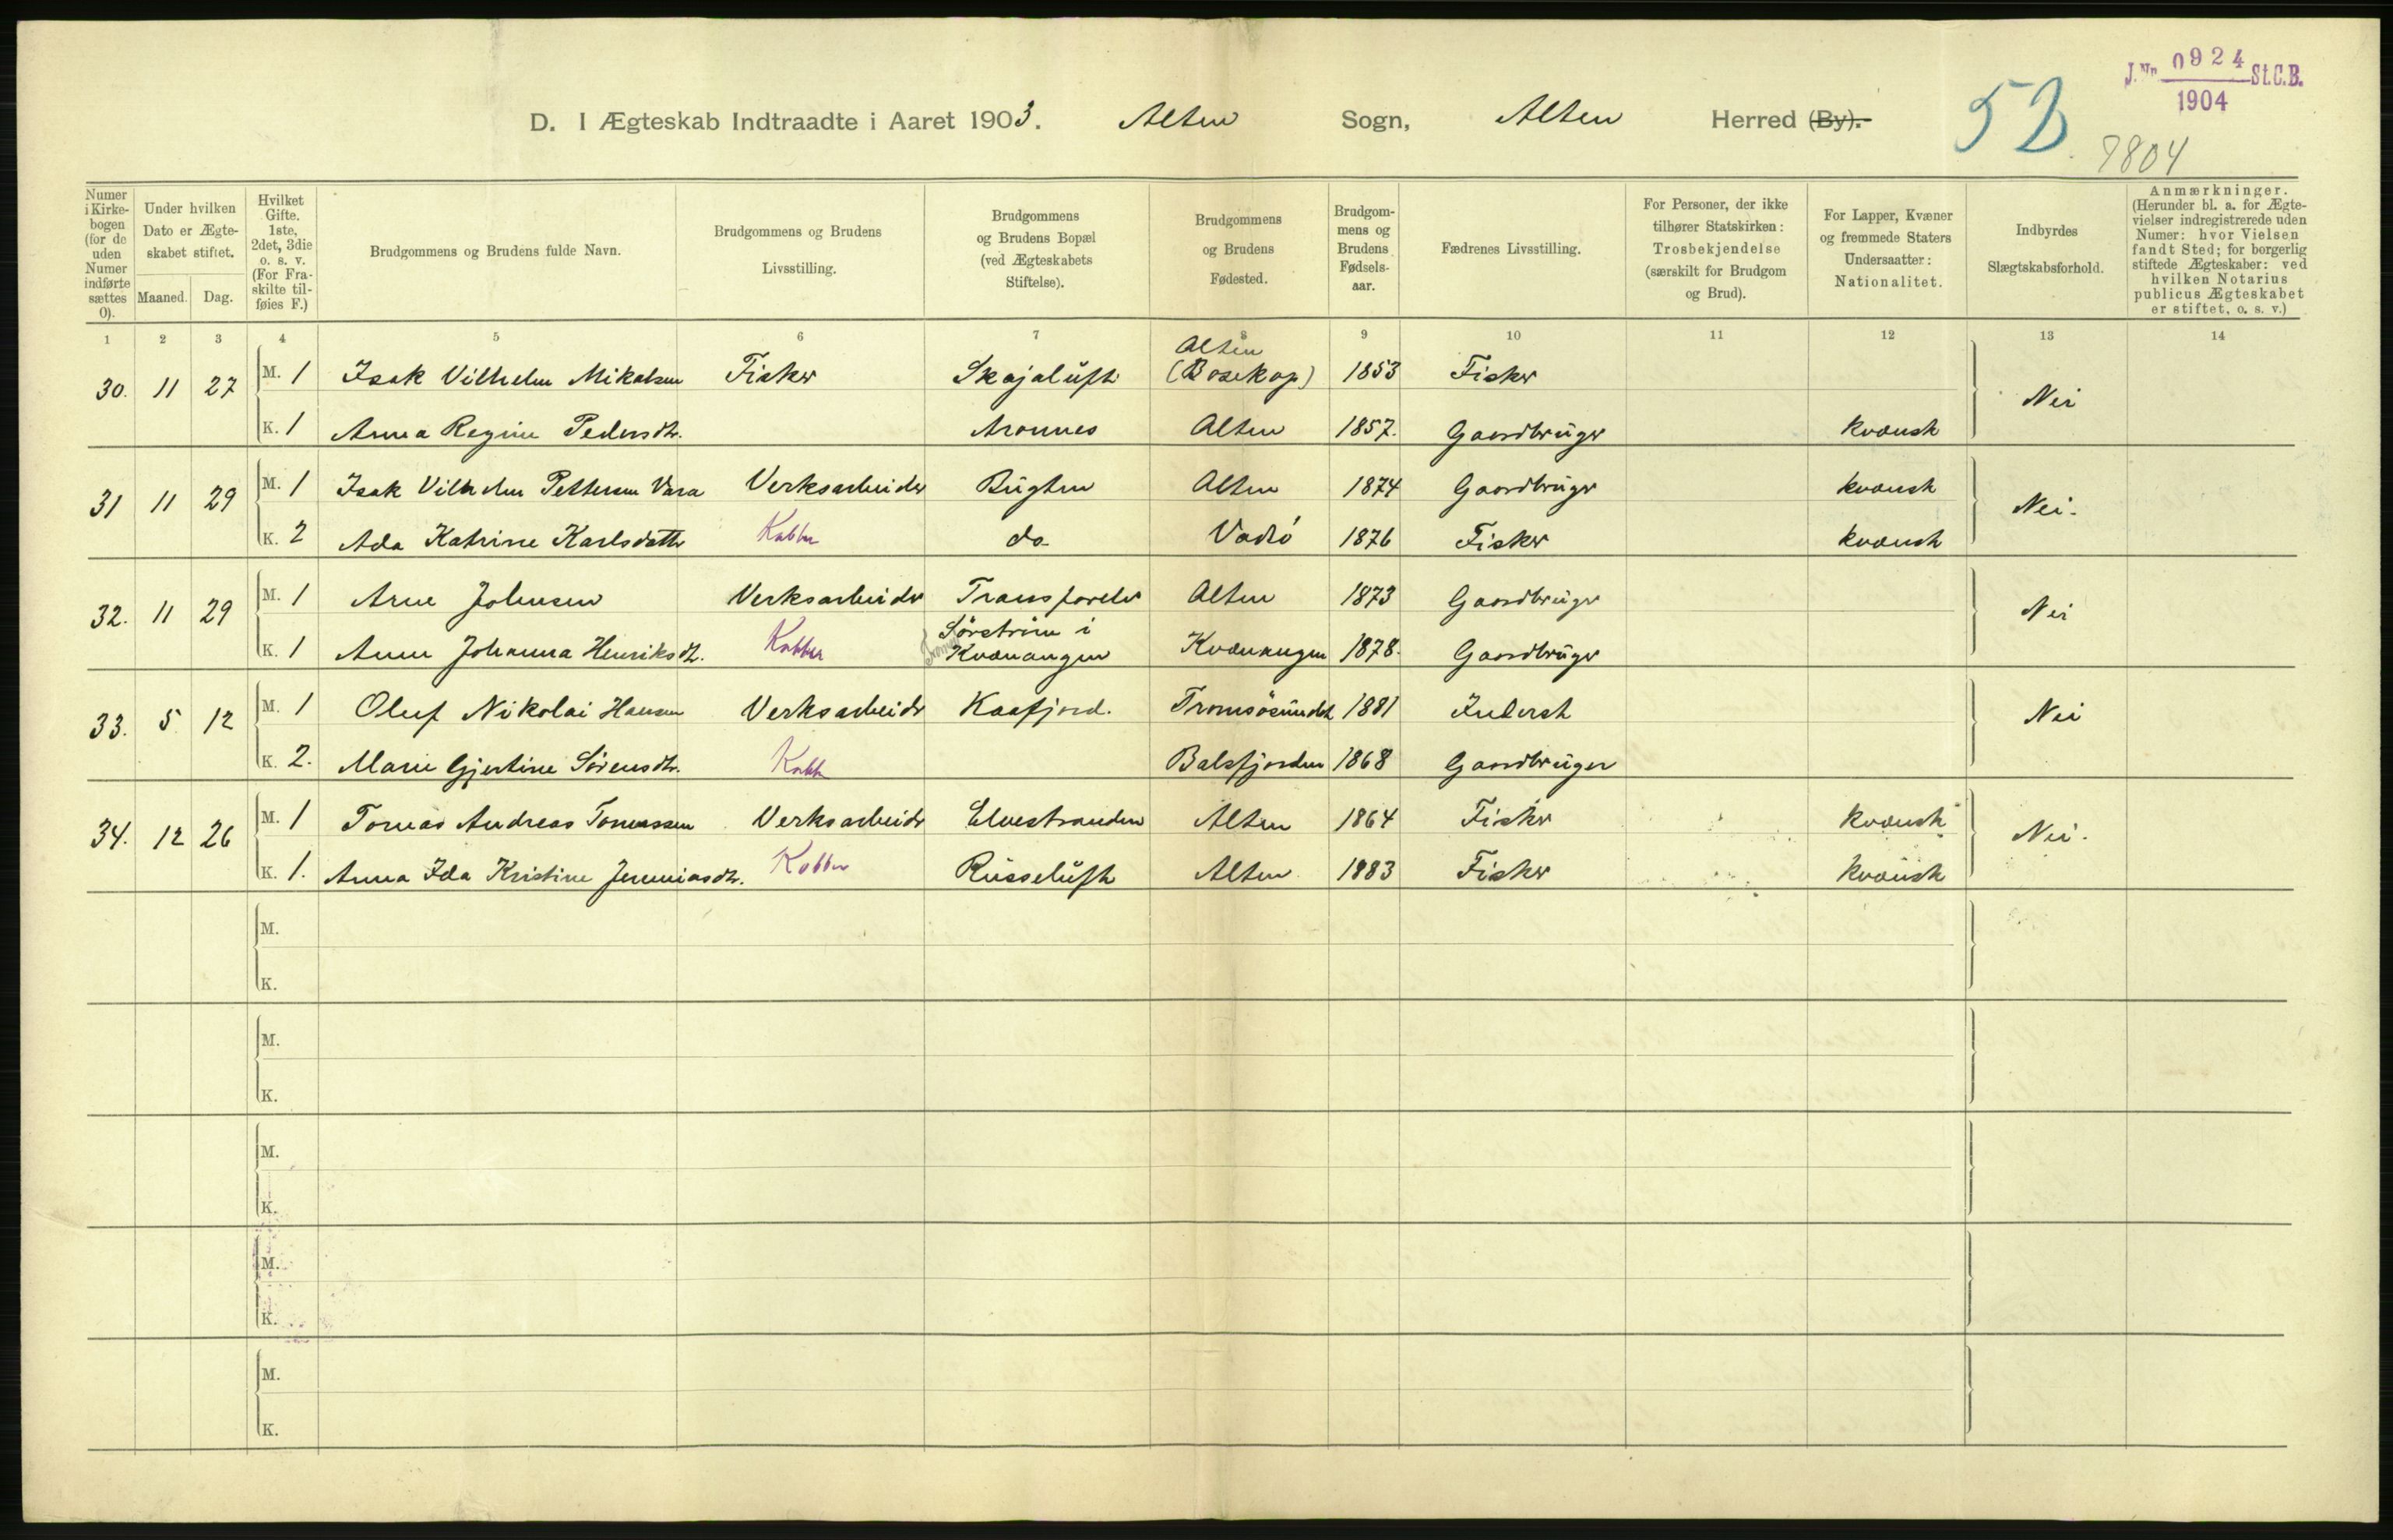 J.Nr. 0924 St.C.B.
1904
D. I Ægteskab Indtraadte i Aaret 1903. Alten Sogn, Alten Herred (By).
52
7804
Numer i Kirkebogen (for de uden Numer indførte sættes 0).
Under hvilken Dato er Ægteskabet stiftet.
Maaned. Dag.
Hvilket Gifte. 1ste, 2det, 3die o. s. v. (For Fraskilte tilføies F.)
Brudgommens og Brudens fulde Navn.
Brudgommens og Brudens Livsstilling.
Brudgommens og Brudens Bopæl (ved Ægteskabets Stiftelse).
Brudgommens og Brudens Fødested.
Brudgommens og Brudens Fødselsaar.
Fædrenes Livsstilling.
For Personer, der ikke tilhører Statskirken: Trosbekjendelse (særskilt for Brudgom og Brud).
For Lapper, Kvæner og fremmede Staters Undersaatter: Nationalitet.
Indbyrdes Slægtskabsforhold.
Anmærkninger. (Herunder bl. a. for Ægtevielser indregistrerede uden Numer: hvor Vielsen fandt Sted; for borgerlig stiftede Ægteskaber: ved hvilken Notarius publicus Ægteskabet er stiftet, o. s. v.)
1 2 3 4 5 6 7 8 9 10 11 12 13 14
30. 11 27 M. 1 Isak Vilhelm Mikalsen Fisker Skajaluft Alten (Bosekop) 1853 Fisker Nei
K. 1 Anna Regine Pedersdtr. Aronnes Alten 1857. Gaardbruger kvænsk
31 11 29 M. 1 Isak Vilhelm Pettersen Vara Verksarbeider Bugten Alten 1874 Gaardbruger kvænsk Nei.
K. 2 Ada Katrine Karlsdatter Kobber do Vadsö 1876 Fisker kvænsk
32. 11 29 M. 1 Arne Johnsen Verksarbeider Transfarelv Alten 1873 Gaardbruger Nei
K. 1 Anne Johanna Henriksdtr. Kobber Sörstrøm i Kvænangen Kvænangen 1878. Gaardbruger
33. 5 12 M. 1 Oluf Nikolai Hansen Verksarbeider Kaafjord. Tromsösundet 1881 Inderst Nei
K. 2. Marie Gjertine Sörensdtr. Kobb Balsfjorden 1868 Gaardbruger
34. 12 26 M. 1 Tomas Andreas Tomassen Verksarbeider Elvestranden Alten 1864 Fisker kvænsk Nei.
K. 1. Anna Ida Kristine Jeremiasdtr. Kobber Russeluft Alten 1883 Fisker kvænsk
M.
K.
M.
K.
M.
K.
M.
K.
M.
K.